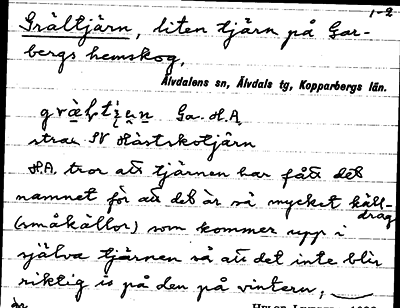 1-2
Gråltjärn, liten tjärn på Gar-
bergs hemskog.
Älvdalens sn, Älvdals tg, Kopparbergs län.
Ga. H.A.
strax SV Hästskotjärn
H.A. tror att tjärnen har fått det
namnet för att det är så mycket käll-
drag
(småkällor) som kommer upp i
själva tjärnen så att det inte blir
riktig is på den på vintern,